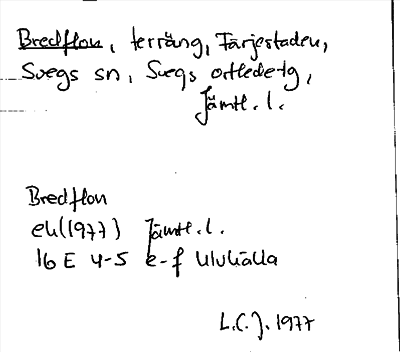 Bredflon, terräng, Färjestaden,
Svegs sn, Svegs
Jämt. l.
Bredflon
ek (1977) Jämt. l.
16 E 4-5 e-f Ulvkälla
L.C.J. 1977